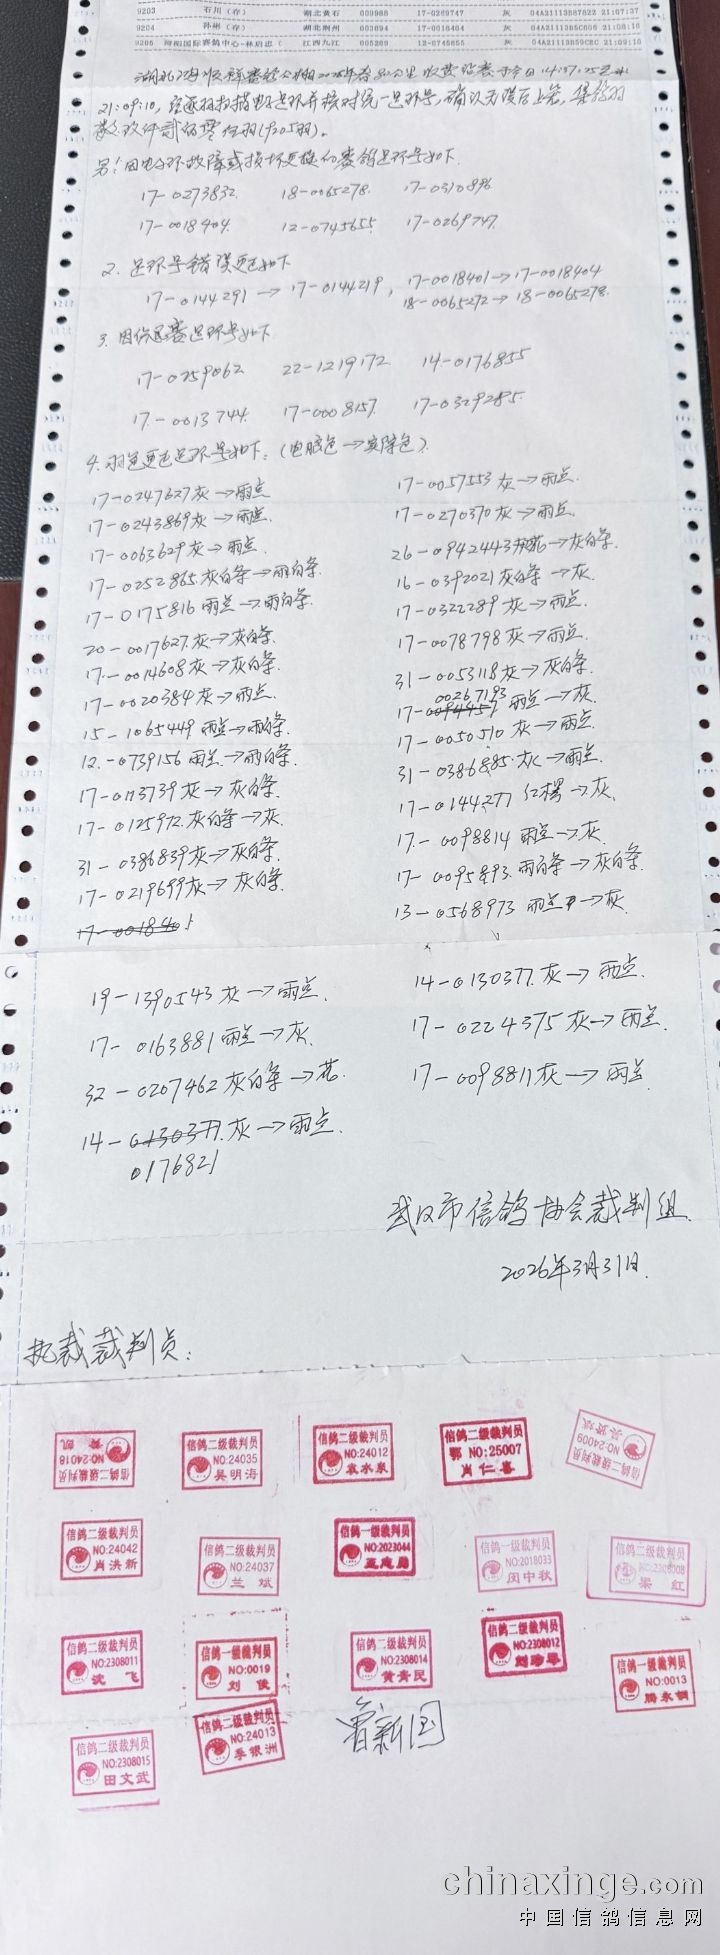 9203 石川(存) 湖北黄石 009988 17-0269747 灰 04A21113B87822 21:07:37
9204 孙彬(存) 湖北荆州 003694 17-0018404 灰 21:08:10
9205 浔阳国际赛鸽中心-林启忠( 江西九江 005289 12-0745655 灰 21:09:10
21:09:10, 经逐羽扫描电子足环并核对统一足环号, 确认无误后上笼, 集鸽羽
数玖仟贰佰零伍羽(9205羽)。
另1.因电子环故障或损坏更换的赛鸽足环号如下.
17-0273832. 18-0065278. 17-0310896
17-0018404. 12-0745655. 17-0269747.
2. 足环号错误更正如下
17-0144291→17-0144219, 17-0018401→17-0018404
18-0065272→18-0065278.
3. 因伤退赛足环号如下.
17-0259062 22-1219172 14-0176855
17-0013744. 17-0008157. 17-0329285.
4. 羽色更正足环号如下:(电脑色→实际色).
17-0247627灰→雨点 17-0057553灰→雨点.
17-0243869灰→雨点. 17-0270370灰→雨点.
17-0063629灰→雨点. 26-0942443雨花→灰白条.
17-0252865灰白条→雨白条. 16-0392021灰白条→灰.
17-0175816雨点→雨白条. 17-0322289灰→雨点.
20-0017627灰→灰白条. 17-0078798灰→雨点.
17-0014608灰→灰白条. 31-0053118灰→灰白条.
00267193
17-0020384灰→雨点. 17-0094457雨点→灰.
15-1065449雨点→雨白条. 17-0050510灰→雨点.
12-0739156雨点→雨白条. 31-0386885灰→雨点.
17-0173739灰→灰白条. 17-0144277红楞→灰.
17-0125972灰白条→灰. 17-0098814雨点→灰.
31-0386839灰→灰白条. 17-0095893雨白条→灰白条.
17-0219699灰→灰白条. 13-0568973雨点→灰.
17-0018401
19-1390543灰→雨点. 14-0130377灰→雨点.
17-0163881雨点→灰. 17-0224375灰→雨点.
32-0207462灰白条→花. 17-0098811灰→雨点.
14-0130377灰→雨点.
0176821
武汉市信鸽协会裁判组.
2026年3月31日.
执裁裁判员:
信鸽二级裁判员 信鸽二级裁判员 信鸽二级裁判员 信鸽二级裁判员 信鸽二级裁判员
NO:24018 NO:24035 NO:24012 鄂 NO:25007 NO:24009
吴明海 袁水泉 肖仁喜
信鸽二级裁判员 信鸽二级裁判员 信鸽一级裁判员 信鸽二级裁判员 信鸽二级裁判员
NO:24042 NO:24037 NO:2023044 NO:2018033 NO:2308008
肖洪新 兰斌 闵中秋 梁红
信鸽二级裁判员 信鸽一级裁判员 信鸽二级裁判员 信鸽二级裁判员 信鸽一级裁判员
NO:2308011 NO:0019 NO:2308014 NO:2308012 NO:0013
沈飞 刘俊 黄青民
信鸽二级裁判员 信鸽二级裁判员 曾新国
NO:2308015 NO:24013
田文武 季银洲
chinaxinge.com
中国信鸽信息网